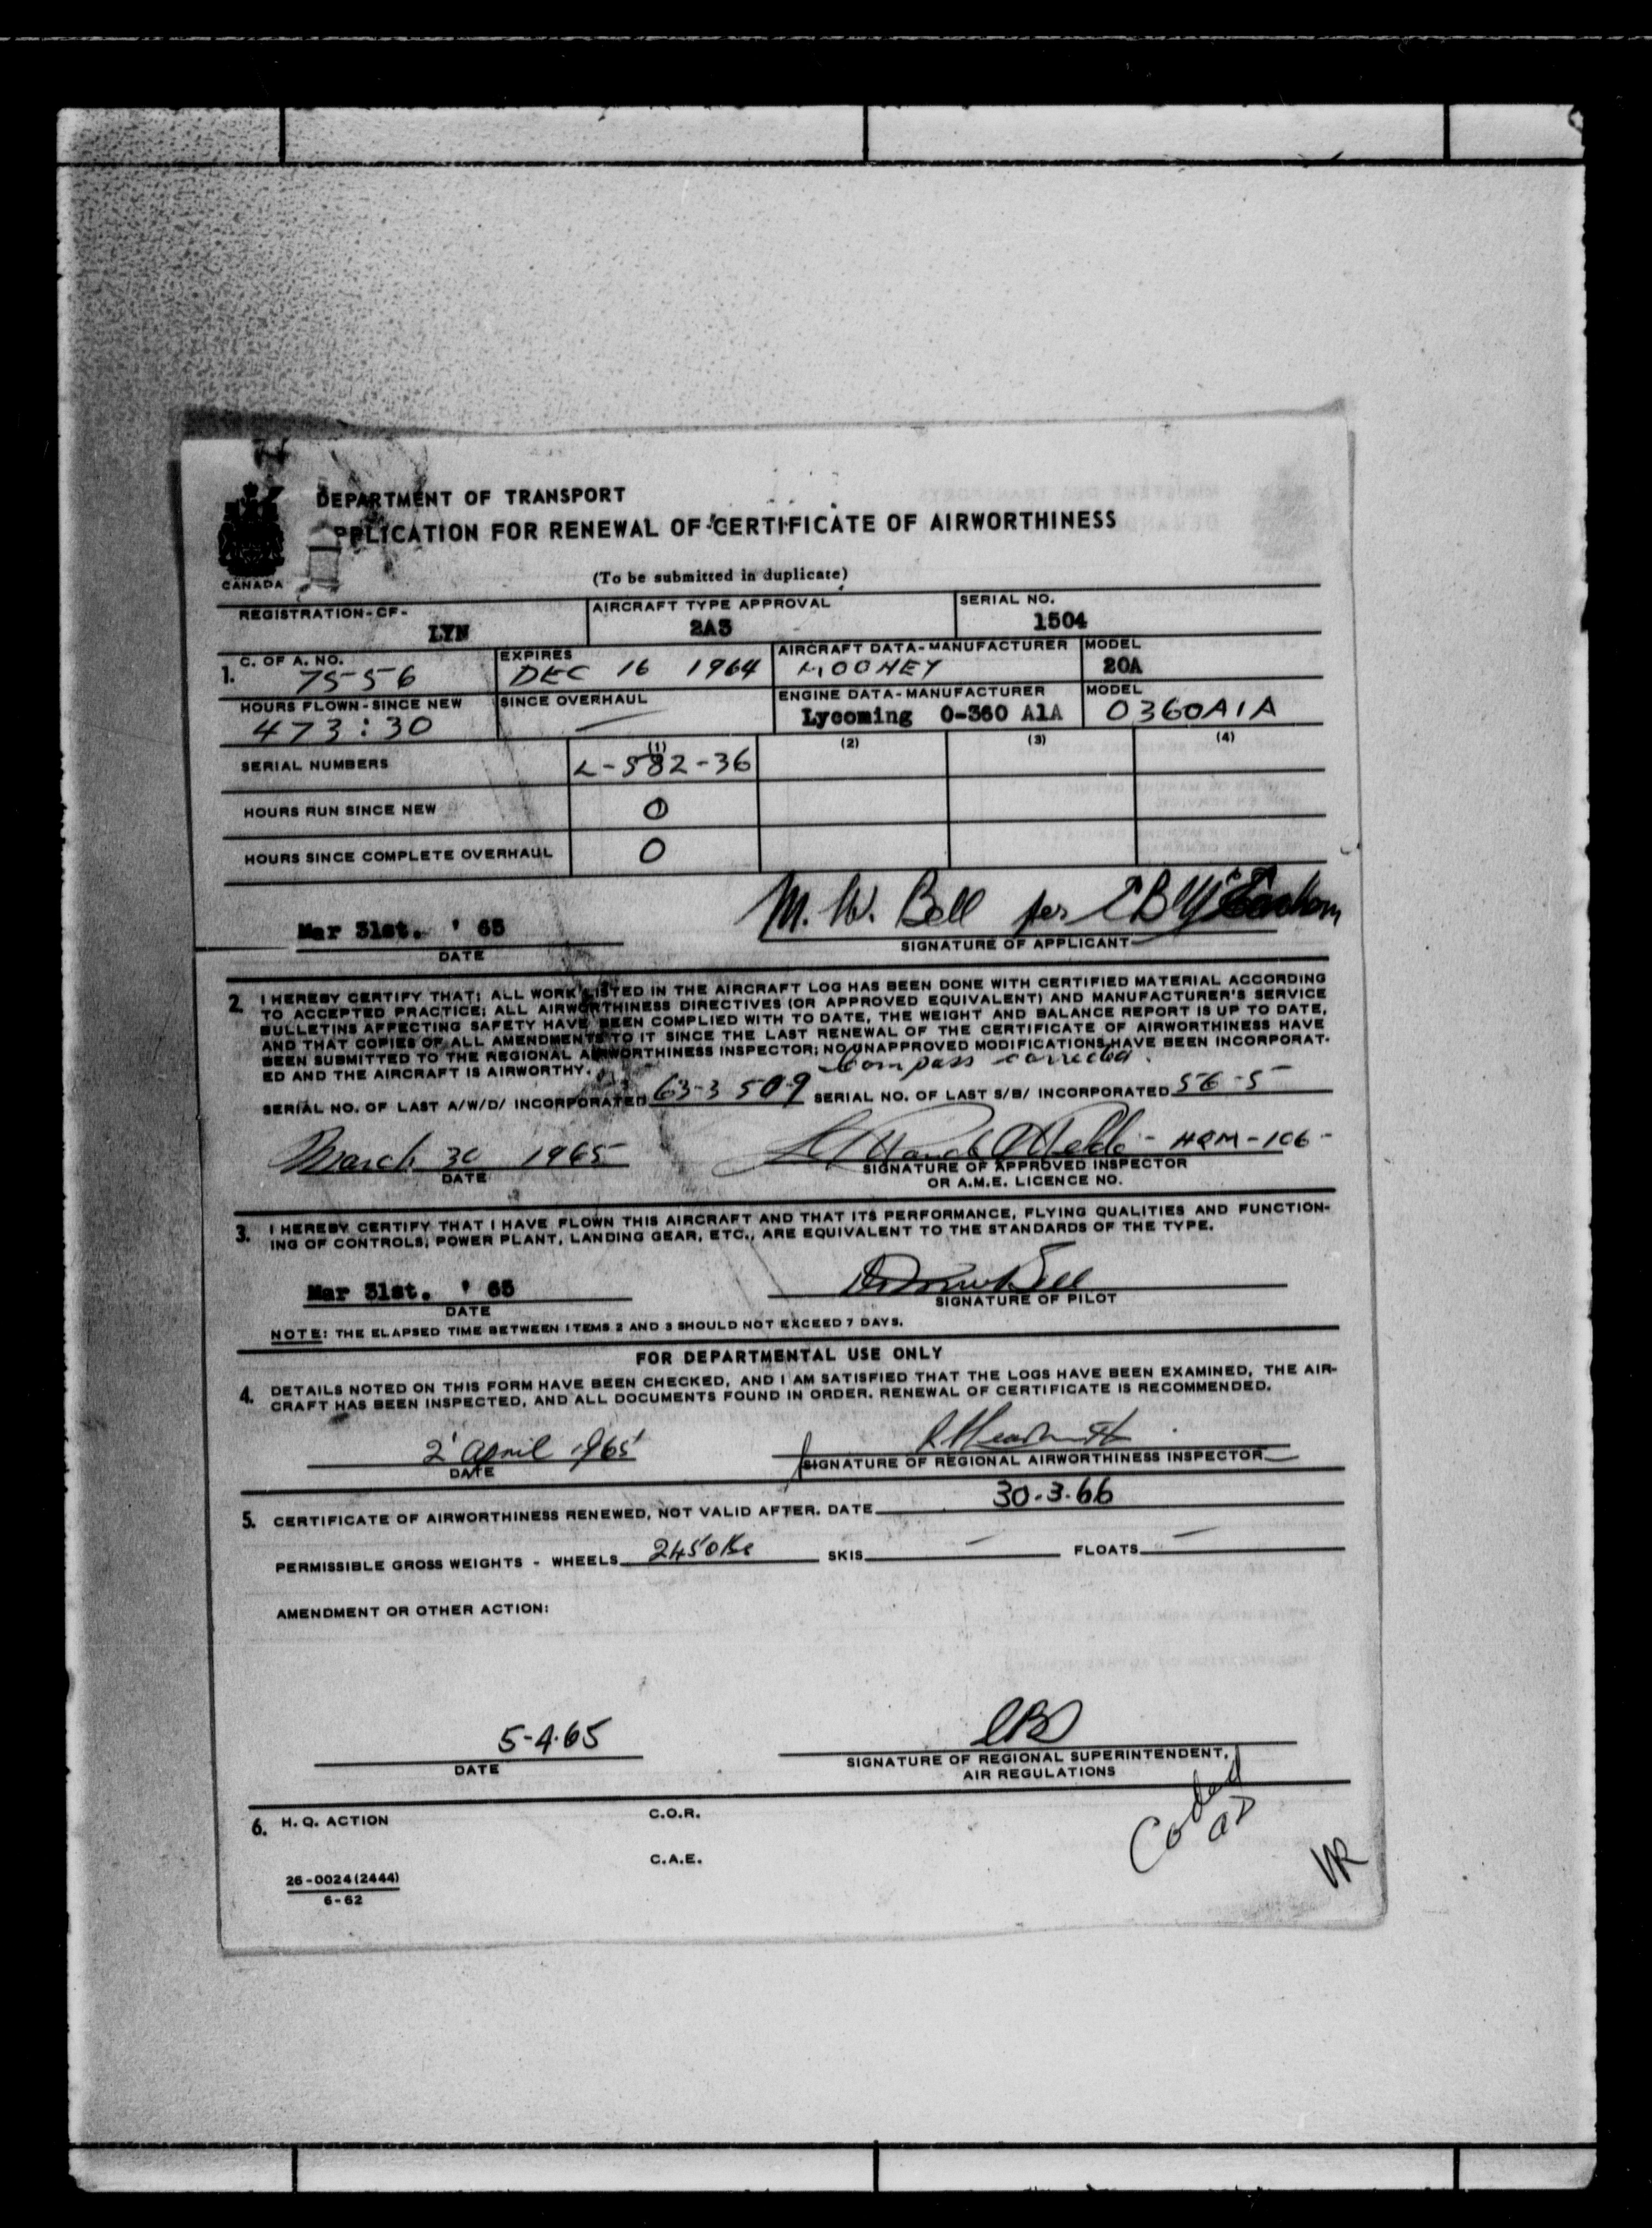 DEPARTMENT OF TRANSPORT
PPLICATION FOR RENEWAL OF CERTIFICATE OF AIRWORTHINESS
CANADA
(To be submitted in duplicate)
REGISTRATION-CF- LYN AIRCRAFT TYPE APPROVAL 2A3 SERIAL NO. 1504
1. C. OF A. NO. 7556 EXPIRES DEC 16 1964 AIRCRAFT DATA-MANUFACTURER MOONEY MODEL 20A
HOURS FLOWN-SINCE NEW 473:30 SINCE OVERHAUL — ENGINE DATA-MANUFACTURER Lycoming O-360 A1A MODEL O360A1A
SERIAL NUMBERS (1) L-582-36 (2) (3) (4)
HOURS RUN SINCE NEW 0
HOURS SINCE COMPLETE OVERHAUL 0
Mar 31st. ' 65 M. W. Bell per
DATE SIGNATURE OF APPLICANT
2. I HEREBY CERTIFY THAT; ALL WORK LISTED IN THE AIRCRAFT LOG HAS BEEN DONE WITH CERTIFIED MATERIAL ACCORDING
TO ACCEPTED PRACTICE; ALL AIRWORTHINESS DIRECTIVES (OR APPROVED EQUIVALENT) AND MANUFACTURER'S SERVICE
BULLETINS AFFECTING SAFETY HAVE BEEN COMPLIED WITH TO DATE, THE WEIGHT AND BALANCE REPORT IS UP TO DATE,
AND THAT COPIES OF ALL AMENDMENTS TO IT SINCE THE LAST RENEWAL OF THE CERTIFICATE OF AIRWORTHINESS HAVE
BEEN SUBMITTED TO THE REGIONAL AIRWORTHINESS INSPECTOR; NO UNAPPROVED MODIFICATIONS HAVE BEEN INCORPORAT-
ED AND THE AIRCRAFT IS AIRWORTHY. Compass corrected.
SERIAL NO. OF LAST A/W/D/ INCORPORATED 63-3 509 SERIAL NO. OF LAST S/B/ INCORPORATED 56-5
March 30 1965 - HRM-106-
DATE SIGNATURE OF APPROVED INSPECTOR
OR A.M.E. LICENCE NO.
3. I HEREBY CERTIFY THAT I HAVE FLOWN THIS AIRCRAFT AND THAT ITS PERFORMANCE, FLYING QUALITIES AND FUNCTION-
ING OF CONTROLS, POWER PLANT, LANDING GEAR, ETC., ARE EQUIVALENT TO THE STANDARDS OF THE TYPE.
Mar 31st. ' 65
DATE SIGNATURE OF PILOT
NOTE: THE ELAPSED TIME BETWEEN ITEMS 2 AND 3 SHOULD NOT EXCEED 7 DAYS.
FOR DEPARTMENTAL USE ONLY
4. DETAILS NOTED ON THIS FORM HAVE BEEN CHECKED, AND I AM SATISFIED THAT THE LOGS HAVE BEEN EXAMINED, THE AIR-
CRAFT HAS BEEN INSPECTED, AND ALL DOCUMENTS FOUND IN ORDER. RENEWAL OF CERTIFICATE IS RECOMMENDED.
2 April 1965
DATE SIGNATURE OF REGIONAL AIRWORTHINESS INSPECTOR
5. CERTIFICATE OF AIRWORTHINESS RENEWED, NOT VALID AFTER. DATE 30.3.66
PERMISSIBLE GROSS WEIGHTS - WHEELS 2450 SKIS — FLOATS —
AMENDMENT OR OTHER ACTION:
5-4.65
DATE SIGNATURE OF REGIONAL SUPERINTENDENT,
AIR REGULATIONS
6. H. Q. ACTION C.O.R.
Coded
C.A.E.
26-0024 (2444)
6-62